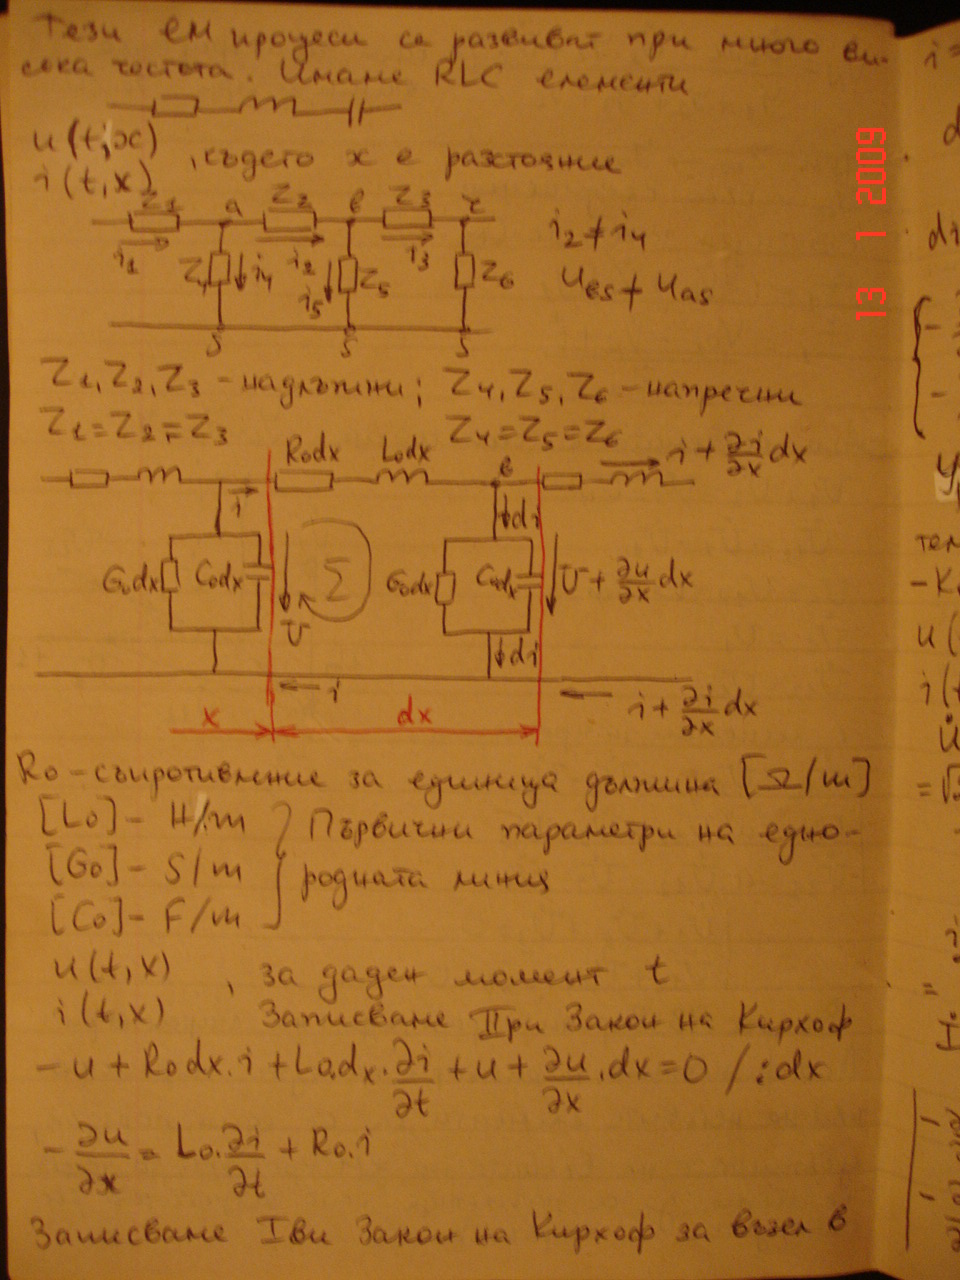 Тези ЕМ процеси се развиват при много ви-
сока честота. Имаме RLC елементи
u(t,x)
i(t,x)
, където x е разстояние
Z1 a Z2 в Z3 г
i1 Z4 i4 i2 i5 Z5 i3 Z6
i2 ≠ i4
uвs ≠ uas
s s s
Z1, Z2, Z3 - надлъжни; Z4, Z5, Z6 - напречни
Z1 = Z2 = Z3 Z4 = Z5 = Z6
R0dx L0dx в i + ∂i/∂x dx
i di
G0dx C0dx Σ G0dx C0dx U + ∂u/∂x dx
U di
i i + ∂i/∂x dx
x dx
R0 - съпротивление за единица дължина [Ω/m]
[L0] - H/m
[G0] - S/m
[C0] - F/m
Първични параметри на едно-
родната линия
u(t,x)
i(t,x)
, за даден момент t
Записваме IIри Закон на Кирхоф
-u + R0dx.i + L0.dx.∂i/∂t + u + ∂u/∂x.dx = 0 /:dx
-∂u/∂x = L0.∂i/∂t + R0.i
Записваме Iви Закон на Кирхоф за възел в
13 1 2009
i =
d
di
тел
-К
u(
i(t